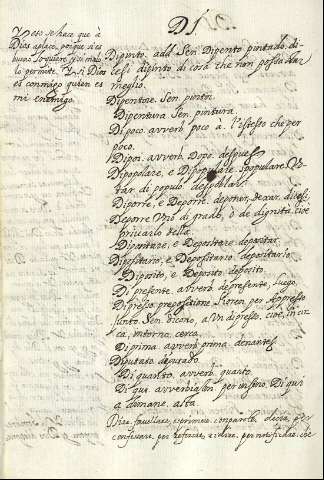 DI
Y esto se hace que à
Dios aplace, porque si es
bueno lo quiere, y si malo
lo permite. Y si Dios
es conmigo quien es
mi enemigo.
Dipinto. add. Sen. Dipento pintado. di-
cesi dipinto di cosa che non possa star
meglio.
Dipentore. Sen. pintor.
Dipentura Sen. pintura.
Di poco. avverb. poco à. l'istesso che per
poco.
Dipoi. avverb. Dopo. despues
Dipopolare, e Dipopulare Spopulare. Vo-
tar di popolo. despoblar.
Diporre, e Deporre. deponer, dexar,
Deporre Uno di grado, ò de dignità, cioè
privarlo della.
Dipositare, e Depositare depositar.
Dipositario, e Depositario. depositario.
Diposito, e Deposito. deposito.
Di presente. avverb. de presente, luego.
Di presso. preposizione. Fioren. per Appresso
junto. Sen. dicono, a Un di presso, cioè, in cir-
ca, intorno. cerca.
Di prima. avverb. prima. denantes
Diputato. deputado.
Di quanto. avverb. quanto.
Di qui. avverbial. per insino. Di qui
a domane. asta
Dire. favellare, esprimere con parole. decir. per
confessare. per per notificare. cioè